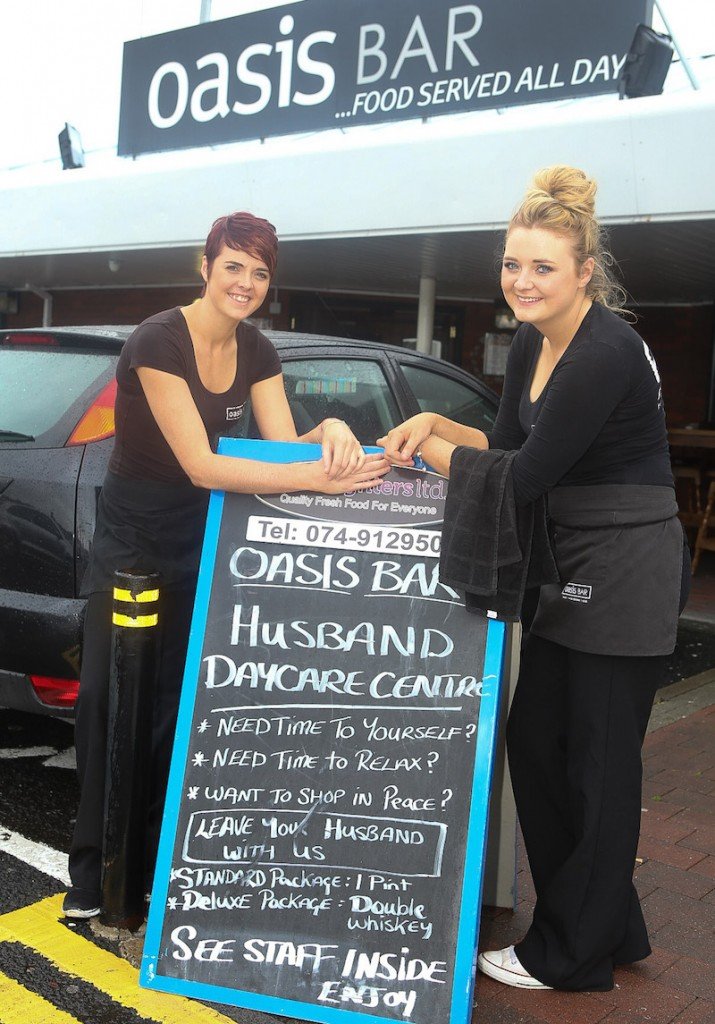 oasis BAR
...FOOD SERVED ALL DAY
oasis
ltd.
Quality Fresh Food For Everyone
Tel: 074-912950
OASIS BAR
HUSBAND
DAYCARE CENTRE
* NEED TIME TO YOURSELF?
* NEED TIME TO RELAX?
* WANT TO SHOP IN PEACE?
LEAVE YOUR HUSBAND
WITH US
* STANDARD PACKAGE: 1 PINT
* DELUXE PACKAGE = DOUBLE
WHISKEY
SEE STAFF INSIDE
ENJOY
oasis BAR